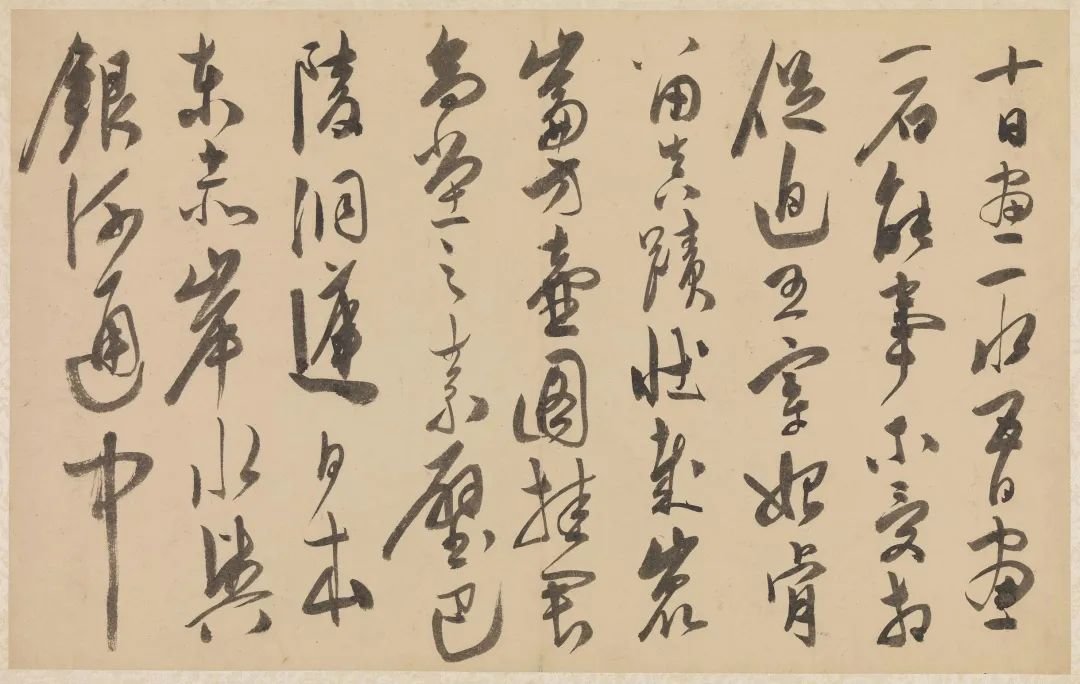 十日畫一水五日畫
一石能事不受相
促迫王宰始肯
留真蹟壯哉崑
崙方壺圖挂君
高堂之素壁巴
陵洞庭日本
東赤岸水與
銀河通中